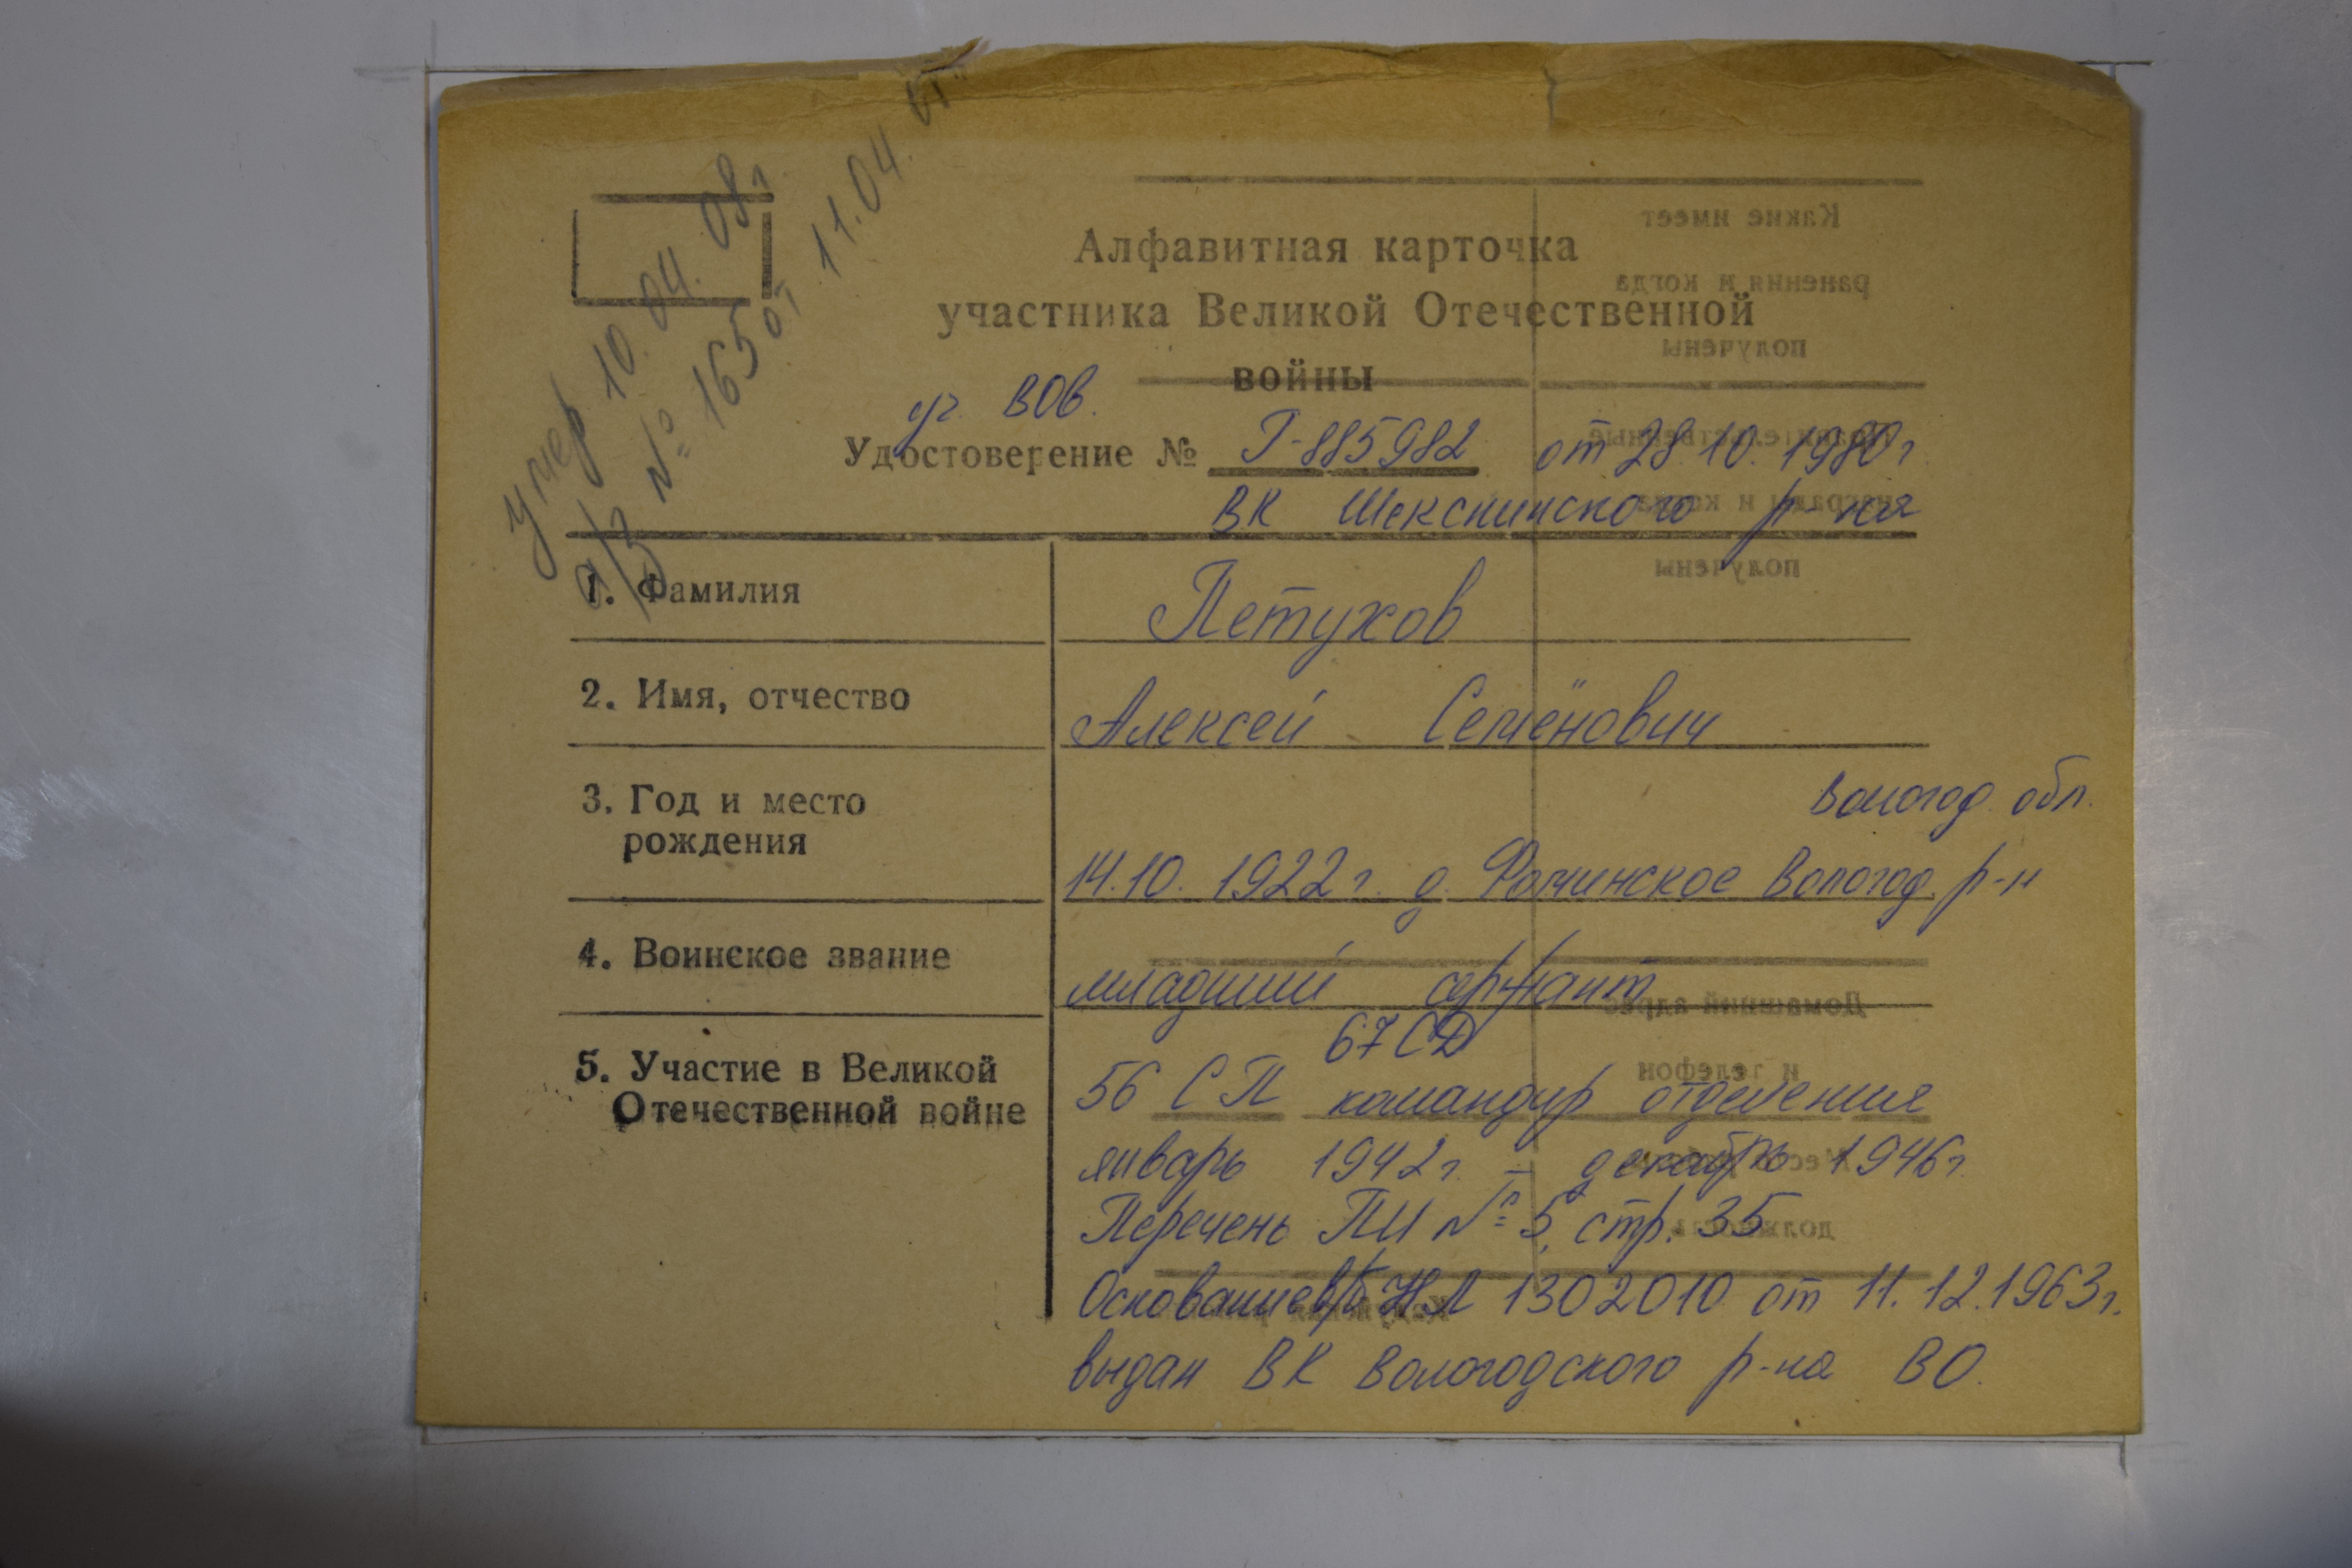 умер 10.04.08г
а/з № 165 от 11.04.
Алфавитная карточка
участника Великой Отечественной
войны
уч. ВОВ.
Удостоверение № Г-885982 от 28.10.1980г
ВК Шекснинского р-на
1. Фамилия Петухов
2. Имя, отчество Алексей Семёнович
3. Год и место
рождения
Вологод. обл.
14.10.1922г. д. Фоминское Вологод. р-н
4. Воинское звание младший сержант
5. Участие в Великой
Отечественной войне
67 СД
56 СП командир отделения
январь 1942г. – декабрь 1946г.
Перечень ПИ № 5, стр. 35
Основание в/б НЛ 1302010 от 11.12.1963г.
выдан ВК Вологодского р-на ВО.
Какие имеет
ранения и когда
получены
получены
Домашний адрес
и телефон